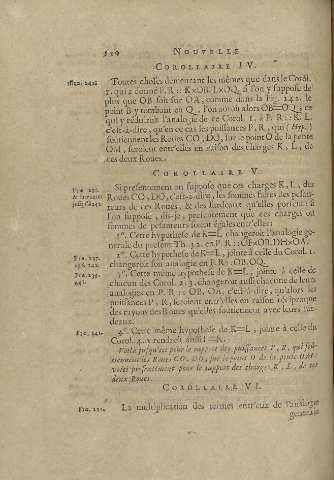 NOUVELLE
COROLLAIRE IV.
Toutes choses demeurant les mêmes que dans le Corol.
1. qui a donné P. R :: K×OB. L×OQ. si l'on y suppose de
plus que OB soit sur OA, comme dans la Fig. 242. le
point B y tombant en Q, l'on aura alors OB=OQ; ce
qui y réduisit l'analogie de ce Corol. 1. à P. R :: K. L.
c'est-à-dire, qu'en ce cas les puissances P, R, qui (Hyp.)
soutiennent les Roues CO, DO, sur le point O de la pente
OM, seroient entr'elles en raison des charges K, L, de
ces deux Roues.
COROLLAIRE V.
Si presentement on suppose que ces charges K, L, des
Roues CO, DO, c'est-à-dire, les sommes faites des pesan-
teurs de ces Roues, & des fardeaux qu'elles portent: si
l'on suppose, dis-je, presentement que ces charges ou
sommes de pesanteurs soient égales entr'elles;
1°. Cette hypothese de K=L changeroit l'analogie ge-
nerale du present Th. 32. en P. R :: OF×OB. DH×OA.
2°. Cette hypothese de K=L, jointe à celle du Corol. 1.
changeroit son analogie en P. R :: OB. OQ.
3°. Cette même hypothese de K=L, jointe à celle de
chacun des Corol. 2. 3. changeroit aussi chacune de leurs
analogies en P. R :: OB. OA. c'est-à-dire, qu'alors les
puissances P, R, seroient entr'elles en raison réciproque
des rayons des Roues qu'elles soutiennent avec leurs far-
deaux.
4°. Cette même hypothese de K=L, jointe à celle du
Corol. 4. y rendroit aussi P=R.
Voila jusqu'ici pour le rapport des puissances P, R, qui soû-
tiennent les Roues CO, DO, sur le point O de la pente OM:
voici presentement pour le rapport des charges K, L, de ces
deux Roues.
COROLLAIRE VI.
La multiplication des termes entr'eux de l'analogie
generale